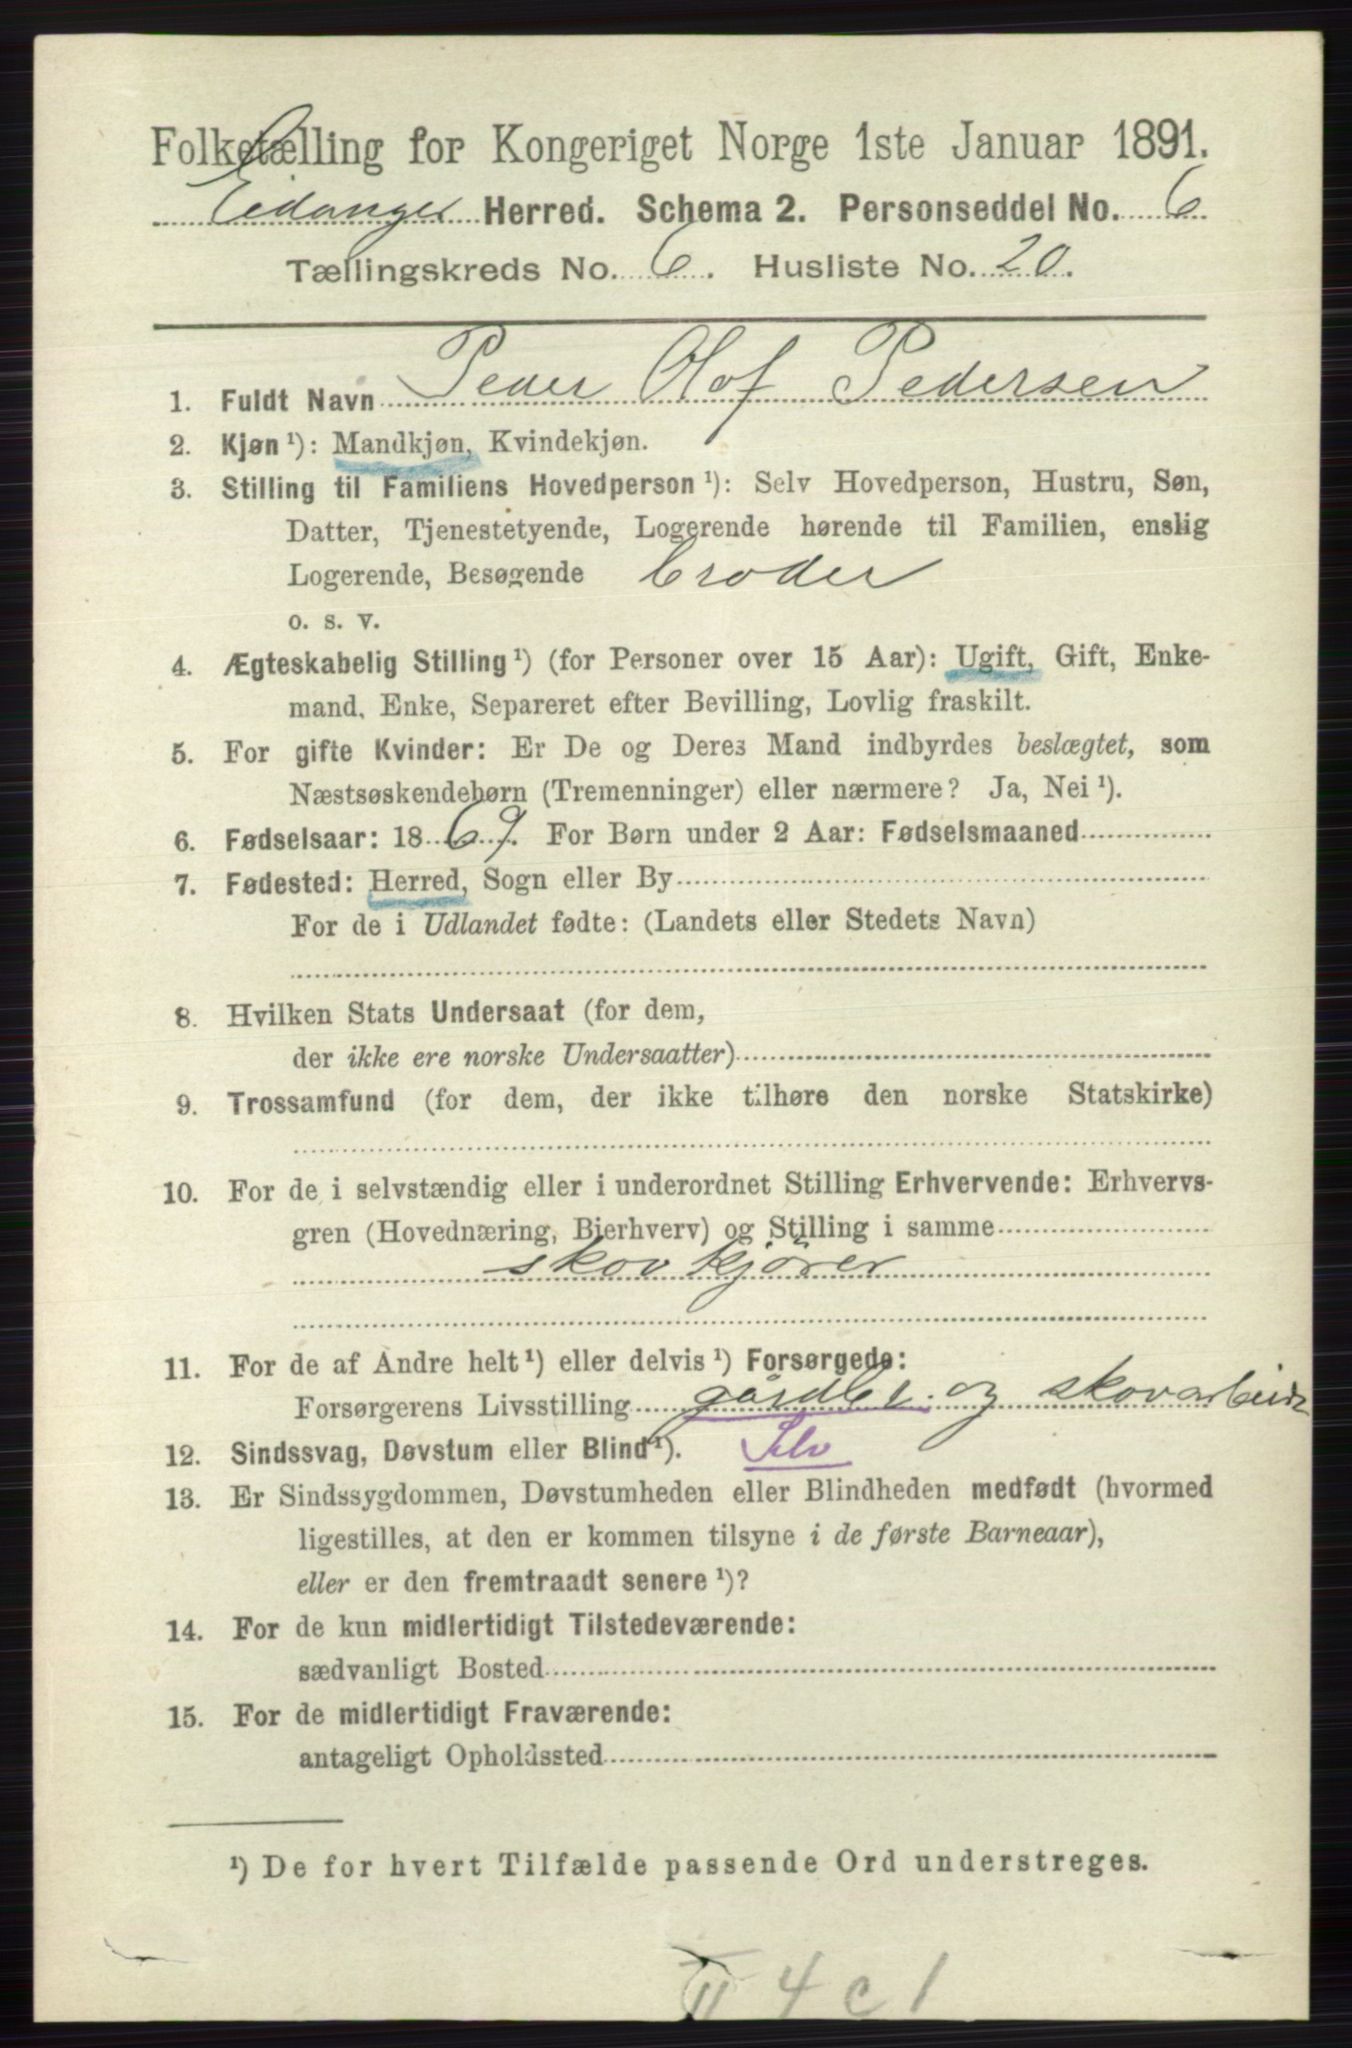 Folketælling for Kongeriget Norge 1ste Januar 1891.
Eidanger Herred. Schema 2. Personseddel No. 6
Tællingskreds No. 6. Husliste No. 20.
1. Fuldt Navn Peder Olof Pedersen
2. Kjøn¹): Mandkjøn, Kvindekjøn.
3. Stilling til Familiens Hovedperson¹): Selv Hovedperson, Hustru, Søn,
Datter, Tjenestetyende, Logerende hørende til Familien, enslig
Logerende, Besøgende broder
o. s. v.
4. Ægteskabelig Stilling¹) (for Personer over 15 Aar): Ugift, Gift, Enke-
mand, Enke, Separeret efter Bevilling, Lovlig fraskilt.
5. For gifte Kvinder: Er De og Deres Mand indbyrdes beslægtet, som
Næstsøskendebørn (Tremenninger) eller nærmere? Ja, Nei¹).
6. Fødselsaar: 1869. For Børn under 2 Aar: Fødselsmaaned
7. Fødested: Herred, Sogn eller By
For de i Udlandet fødte: (Landets eller Stedets Navn)
8. Hvilken Stats Undersaat (for dem,
der ikke ere norske Undersaatter)
9. Trossamfund (for dem, der ikke tilhøre den norske Statskirke)
10. For de i selvstændig eller i underordnet Stilling Erhvervende: Erhvervs-
gren (Hovednæring, Bierhverv) og Stilling i samme
skovkjører
11. For de af Andre helt¹) eller delvis¹) Forsørgede:
Forsørgerens Livsstilling gårdbr. og skovarbeider
12. Sindssvag, Døvstum eller Blind¹). Selv
13. Er Sindssygdommen, Døvstumheden eller Blindheden medfødt (hvormed
ligestilles, at den er kommen tilsyne i de første Barneaar),
eller er den fremtraadt senere¹)?
14. For de kun midlertidigt Tilstedeværende:
sædvanligt Bosted
15. For de midlertidigt Fraværende:
antageligt Opholdssted
¹) De for hvert Tilfælde passende Ord understreges.
II 4 c 1